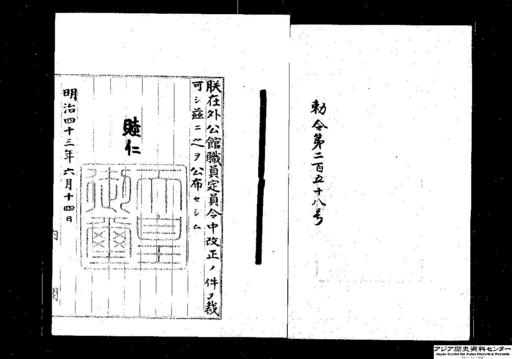 勅令第二百五十八号
朕在外公館職員定員令中改正ノ件ヲ裁
可シ茲ニ之ヲ公布セシム
睦仁
天皇
御璽
明治四十三年六月十四日
内閣
アジア歴史資料センター
Japan Center for Asian Historical Records